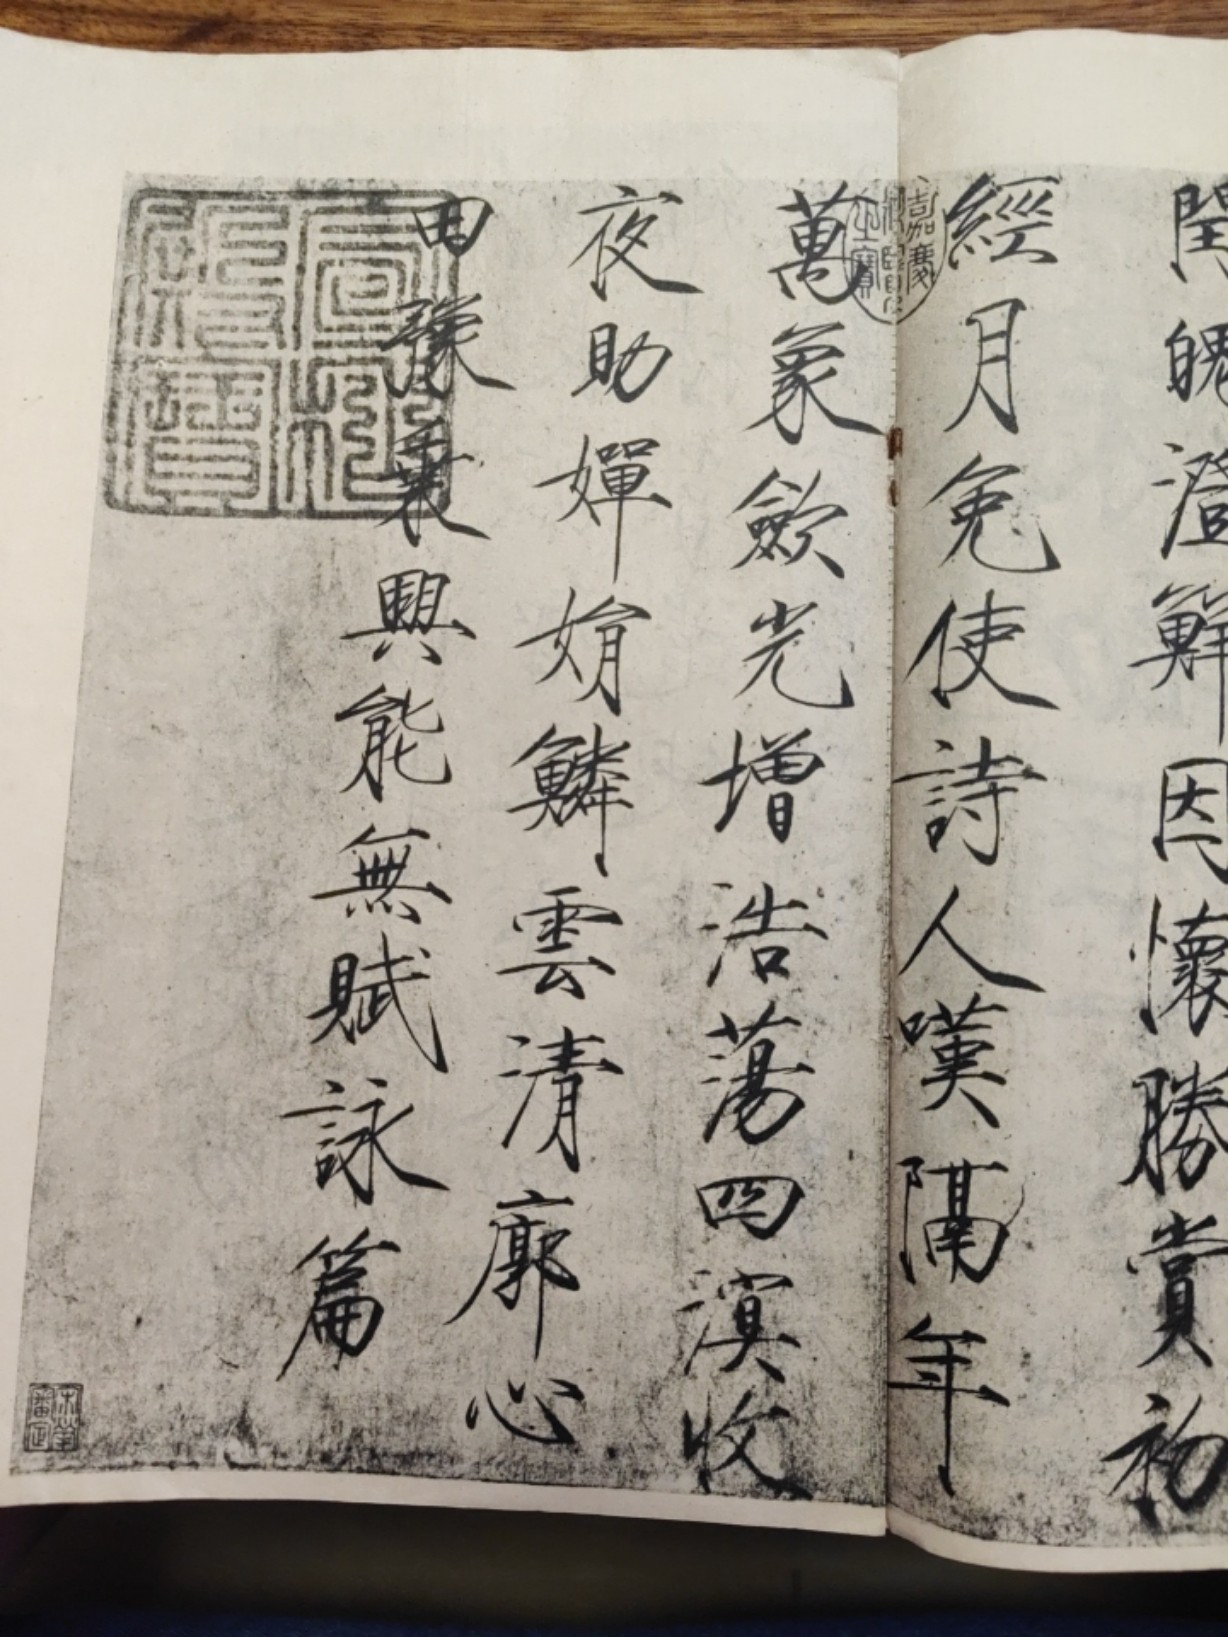 閏魄澄鮮因懷勝賞初
經月免使詩人嘆隔年
萬象斂光增浩蕩四溟收
夜助嬋娟鱗雲清廓心
田豫乘興能無賦詠篇
嘉慶御覽之寶
宣統御覽之寶